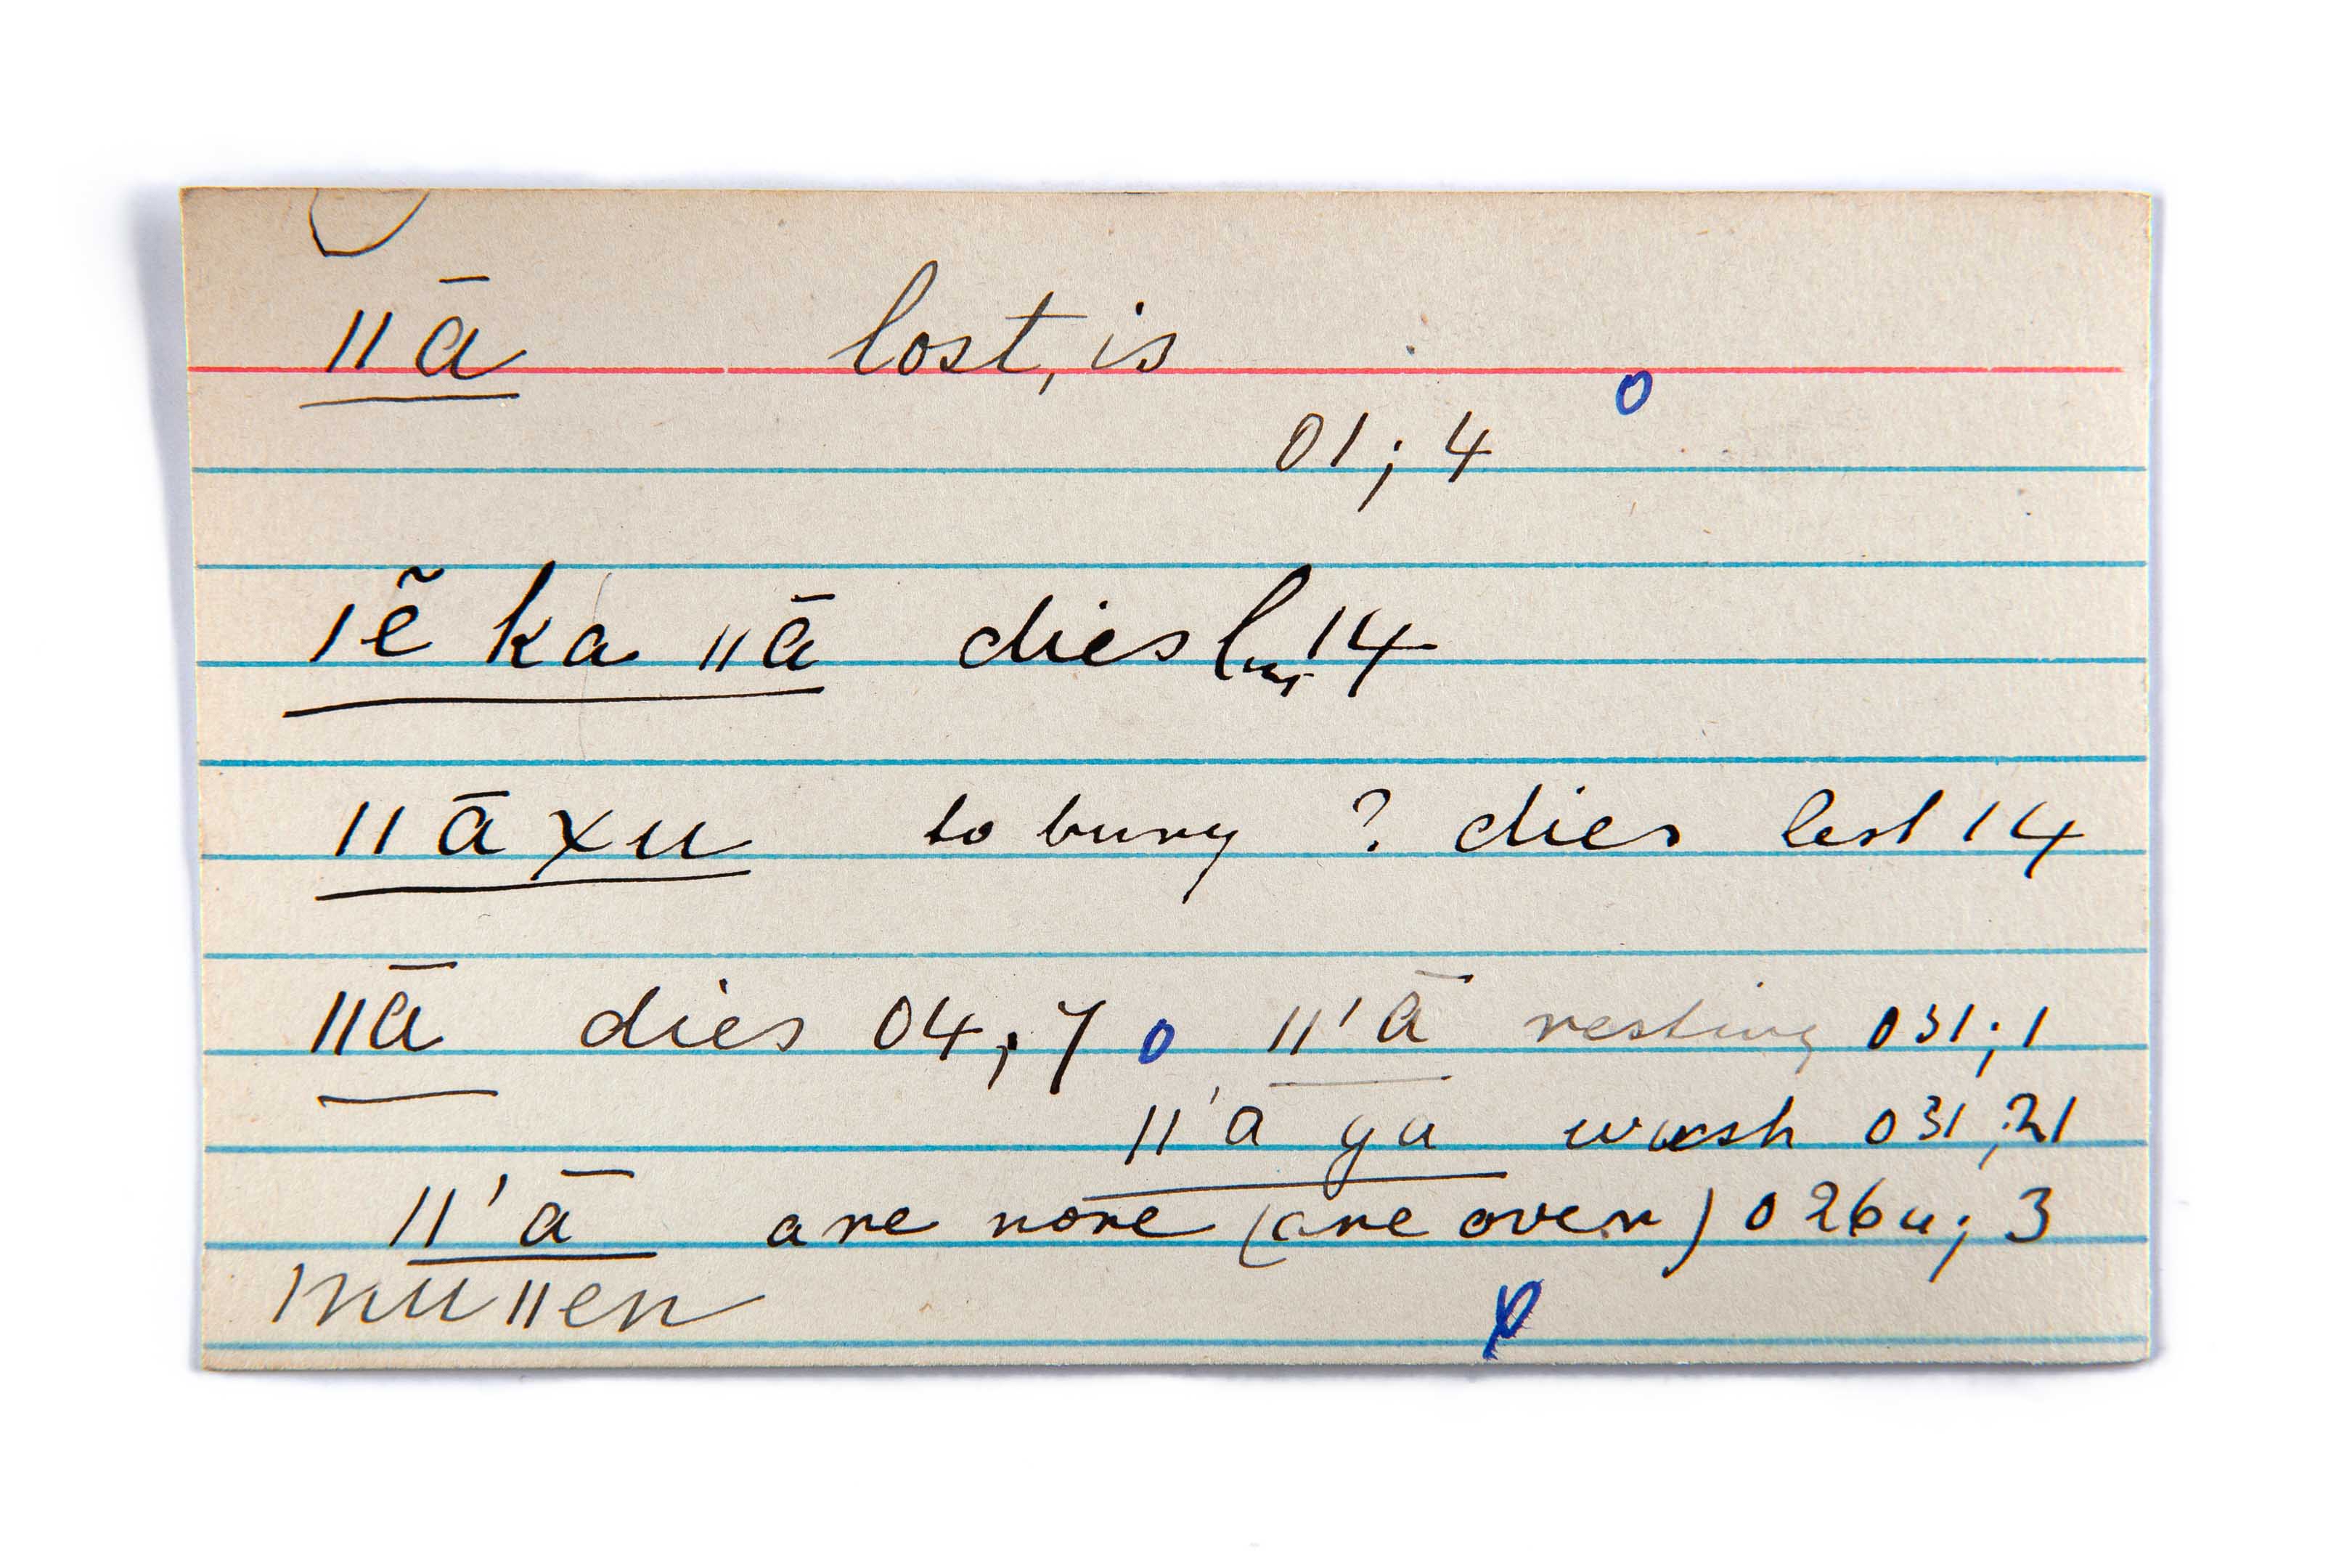 ǁā lost, is
01; 4
ǀẽ ka ǁā dies 14
ǁāxu to bury ? dies lest 14
ǁā dies 04; 7 o ǁ'ā resting 031; 1
ǁ'a ya wash 031; 21
ǁ'ā are nore (are over) 026u; 3
ǀnuǁen